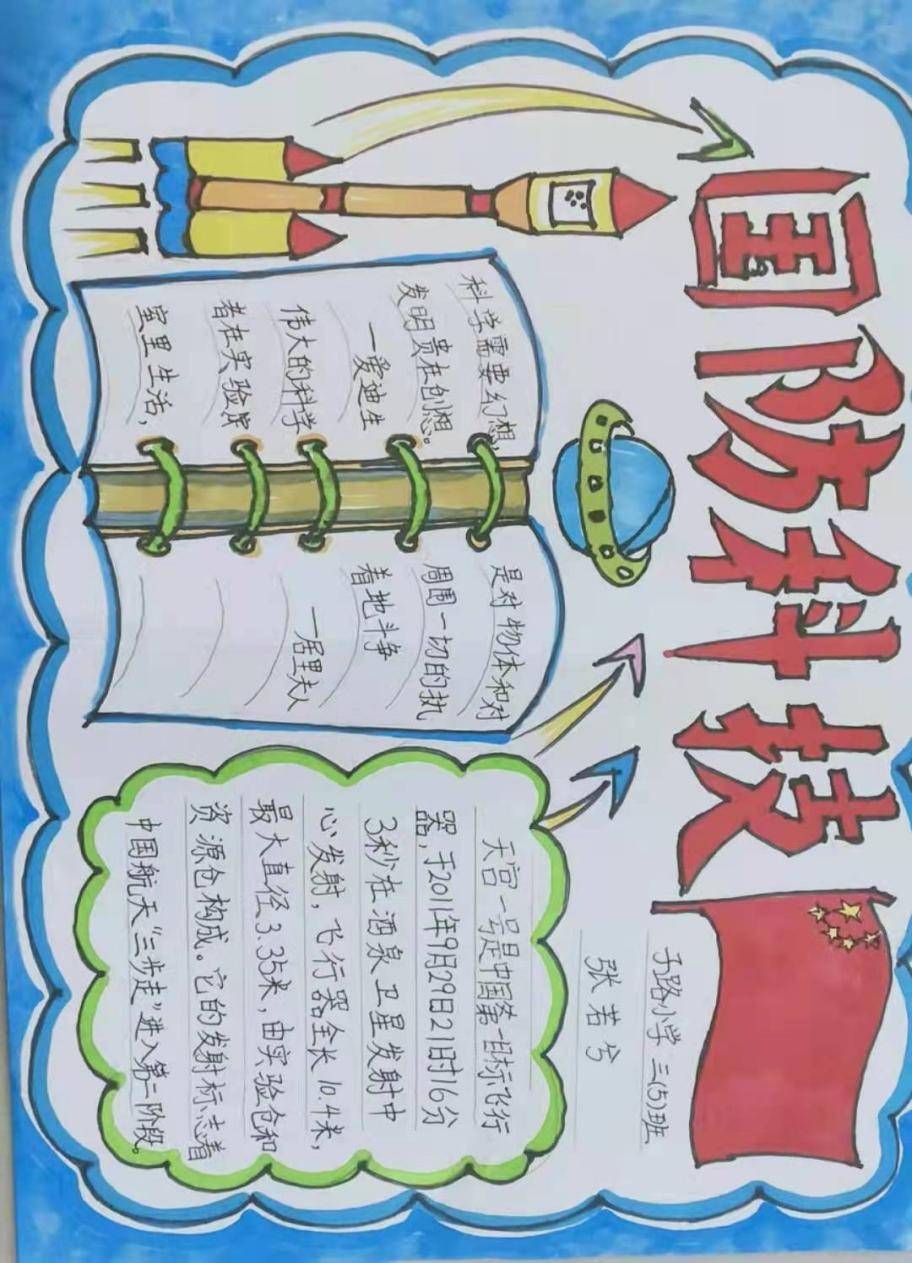 国防科技
子路小学 三(5)班
张若兮
科学需要幻想,
发明贵在创想。
一爱迪生
伟大的科学
者在实验床
室里生活,
是对物体和对
周围一切的执
着地斗争
一居里夫人
天宫一号是中国第一目标飞行
器,于2011年9月29日21时16分
3秒在酒泉卫星发射中
心发射,飞行器全长10.4米,
最大直径3.35米,由实验仓和
资源仓构成。它的发射标志着
中国航天“三步走”进入第二阶段。